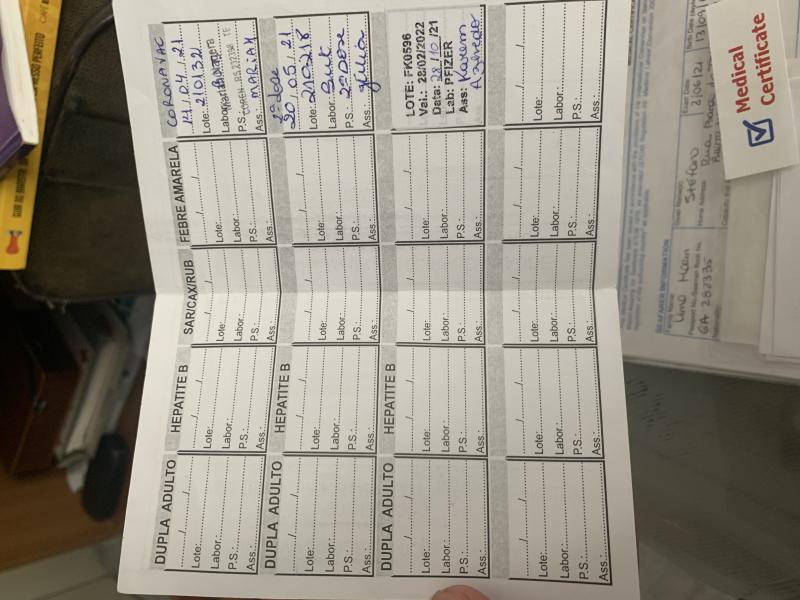 DUPLA ADULTO
HEPATITE B
SAR/CAX/RUB
FEBRE AMARELA
CORONAVAC
......./......./.......
Lote:
Labor.:
P.S.:
Ass.:
......./......./.......
Lote:
Labor.:
P.S.:
Ass.:
......./......./.......
Lote:
Labor.:
P.S.:
Ass.:
......./......./.......
Lote:
Labor.:
P.S.:
Ass.:
14/04/21
Lote: 210132
Labor.:
P.S.:
Ass.:
DUPLA ADULTO
HEPATITE B
2ª dose
......./......./.......
Lote:
Labor.:
P.S.:
Ass.:
......./......./.......
Lote:
Labor.:
P.S.:
Ass.:
......./......./.......
Lote:
Labor.:
P.S.:
Ass.:
......./......./.......
Lote:
Labor.:
P.S.:
Ass.:
20/05/21
Lote: 210218
Labor.: But
P.S.: 2ª Dose
Ass.:
DUPLA ADULTO
HEPATITE B
......./......./.......
Lote:
Labor.:
P.S.:
Ass.:
......./......./.......
Lote:
Labor.:
P.S.:
Ass.:
......./......./.......
Lote:
Labor.:
P.S.:
Ass.:
......./......./.......
Lote:
Labor.:
P.S.:
Ass.:
LOTE: FK0596
Val.: 28/02/2022
Data: 28/10/21
Lab: PFIZER
Ass: Karem
Azevedo
......./......./.......
Lote:
Labor.:
P.S.:
Ass.:
......./......./.......
Lote:
Labor.:
P.S.:
Ass.:
......./......./.......
Lote:
Labor.:
P.S.:
Ass.:
......./......./.......
Lote:
Labor.:
P.S.:
Ass.:
......./......./.......
Lote:
Labor.:
P.S.:
Ass.:
Medical
Certificate
SEAFARER INFORMATION
Stefano
GA 282335